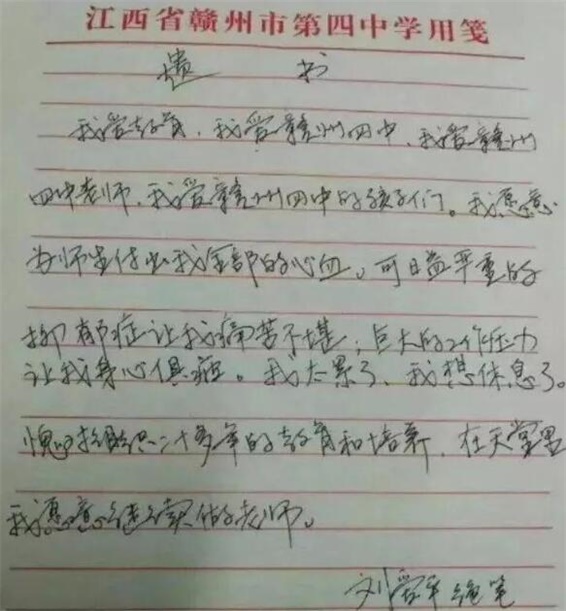 江西省赣州市第四中学用笺
遗 书
我爱教育，我爱赣州四中，我爱赣州
四中老师，我爱赣州四中的孩子们。我愿意
为师生付出我全部的心血。可日益严重的
抑郁症让我痛苦不堪；巨大的工作压力
让我身心俱疲。我太累了，我想休息了。
愧对组织二十多年的教育和培养，在天堂里
我愿意继续做老师。
刘爱平 绝笔